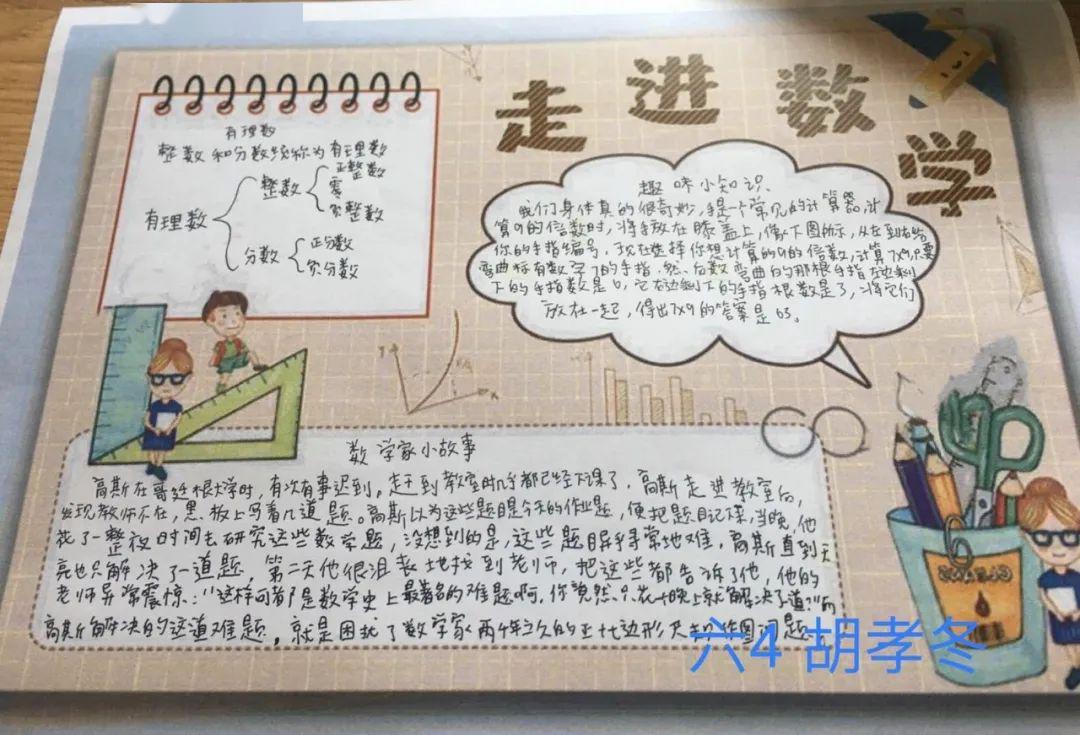 走进数学
有理数
整数和分数统称为有理数
有理数
整数
正整数
零
负整数
分数
正分数
负分数
趣味小知识
我们身体真的很奇妙,手是一个常见的计算器,计
算9的倍数时,将手放在膝盖上,像下图所示,从左到右给
你的手指编号,现在选择你想计算的9的倍数,计算7x9,只要
弯曲标有数字7的手指,然后数弯曲的那根手指左边剩
下的手指数是6,它右边剩下的手指根数是3,将它们
放在一起,得出7x9的答案是63。
数学家小故事
高斯在哥廷根大学时,有次有事迟到,赶到教室时几乎都已经下课了,高斯走进教室后,
发现教师不在,黑板上写着几道题。高斯以为这些题目是今天的作业题,便把题目记录,当晚,他
花了一整夜时间去研究这些数学题,没想到的是,这些题目异乎寻常地难,高斯直到天
亮也只解决了一道题,第二天他很沮丧地找到老师,把这些都告诉了他,他的
老师异常震惊:"这样可都是数学史上最著名的难题啊,你竟然只花一晚上就解决了一道?"而
高斯解决的这道难题,就是困扰了数学家两千年之久的正十七边形尺规作图问题
六4 胡孝冬